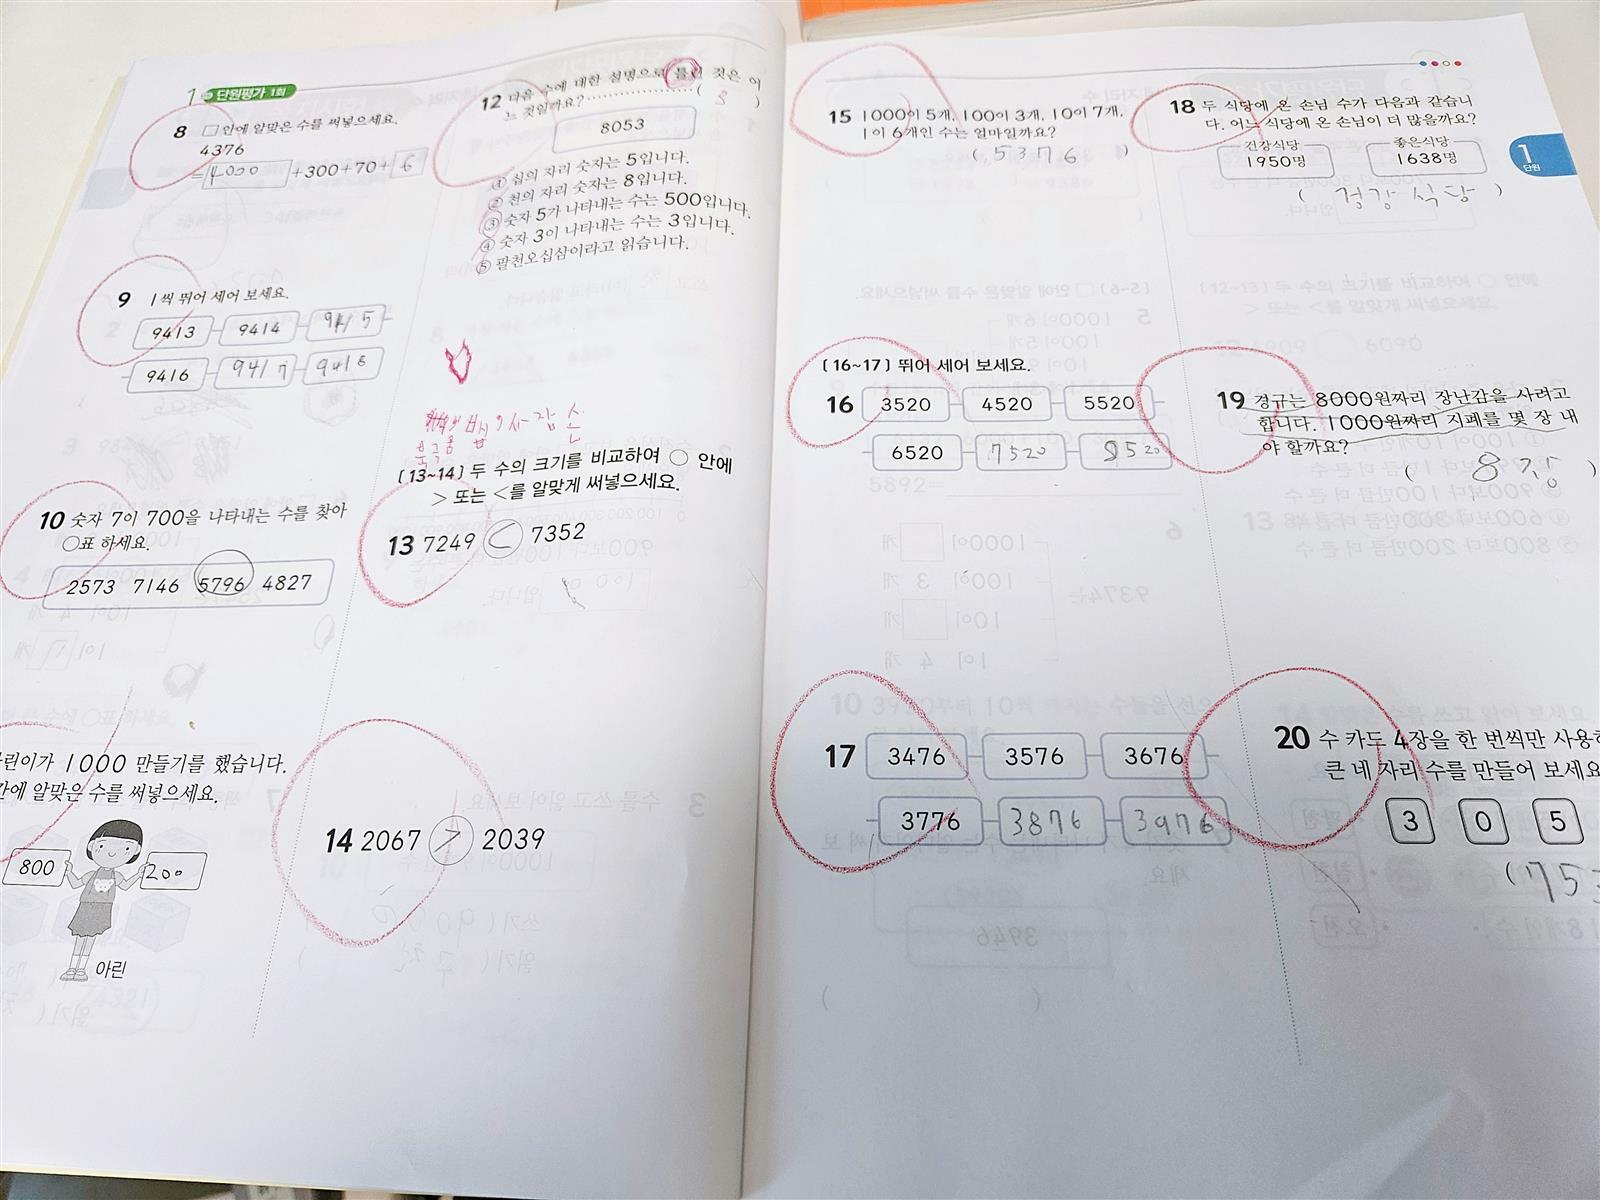 1 단원평가 1회
8 □ 안에 알맞은 수를 써넣으세요.
4376
=4000+300+70+6
9 1씩 뛰어 세어 보세요.
9413 9414 9415
9416 9417 9418
10 숫자 7이 700을 나타내는 수를 찾아
○표 하세요.
2573 7146 5796 4827
린이가 1000 만들기를 했습니다.
간에 알맞은 수를 써넣으세요.
800 200
아린
12 다음 수에 대한 설명으로 틀린 것은 어
느 것일까요? ( 3 )
8053
① 십의 자리 숫자는 5입니다.
② 천의 자리 숫자는 8입니다.
③ 숫자 5가 나타내는 수는 500입니다.
④ 숫자 3이 나타내는 수는 3입니다.
⑤ 팔천오십삼이라고 읽습니다.
[13~14] 두 수의 크기를 비교하여 ○ 안에
> 또는 <를 알맞게 써넣으세요.
13 7249 < 7352
14 2067 > 2039
15 1000이 5개, 100이 3개, 10이 7개,
1이 6개인 수는 얼마일까요?
( 5376 )
[16~17] 뛰어 세어 보세요.
16 3520 4520 5520
6520 7520 8520
17 3476 3576 3676
3776 3876 3976
18 두 식당에 온 손님 수가 다음과 같습니
다. 어느 식당에 온 손님이 더 많을까요?
건강식당 좋은식당
1950명 1638명
( 겅강식당 )
1
단원
19 경규는 8000원짜리 장난감을 사려고
합니다. 1000원짜리 지폐를 몇 장 내
야 할까요?
( 8장 )
20 수 카드 4장을 한 번씩만 사용하
큰 네 자리 수를 만들어 보세요
3 0 5
(753